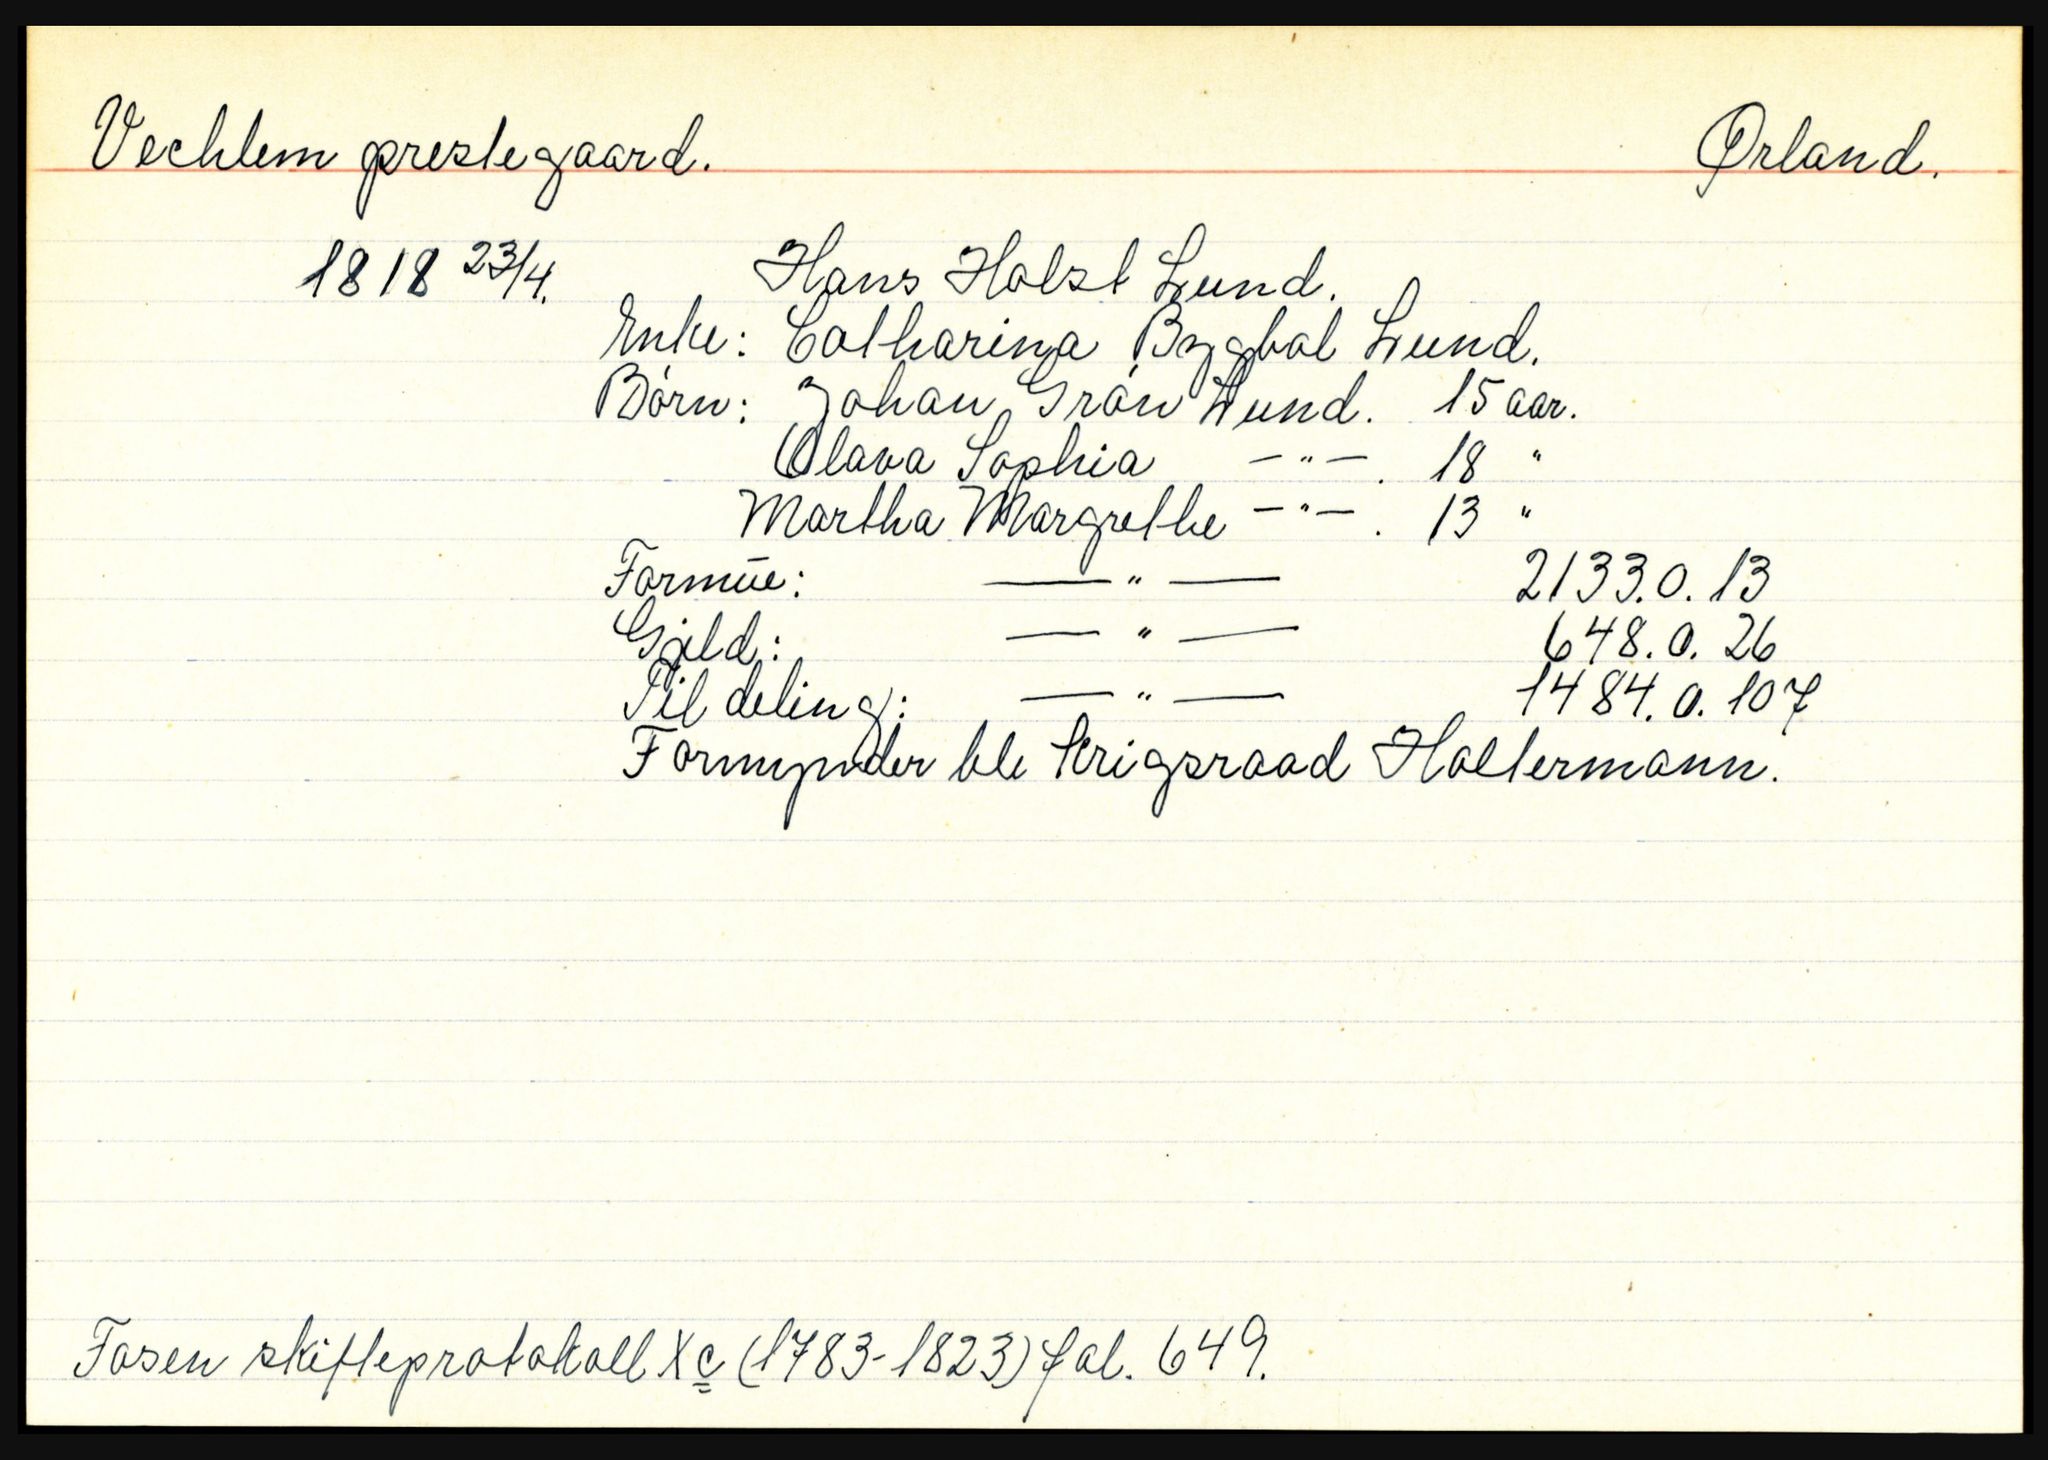 Vechlem prestegaard. Ørland.
1818 23/4. Hans Holst Lund.
Enke: Catharina Bygbal Lund.
Børn: Johan Grøn Lund. 15 aar.
Olava Sophia —"—. 18 "
Martha Margrethe —"—. 13 "
Formue: —"— 2133.0.13
Gjeld: —"— 648.0.26
Til deling: —"— 1484.0.107
Formynder ble Krigsraad Holtermann.
Fosen skifteprotokoll Xc (1783-1823) fol. 649.